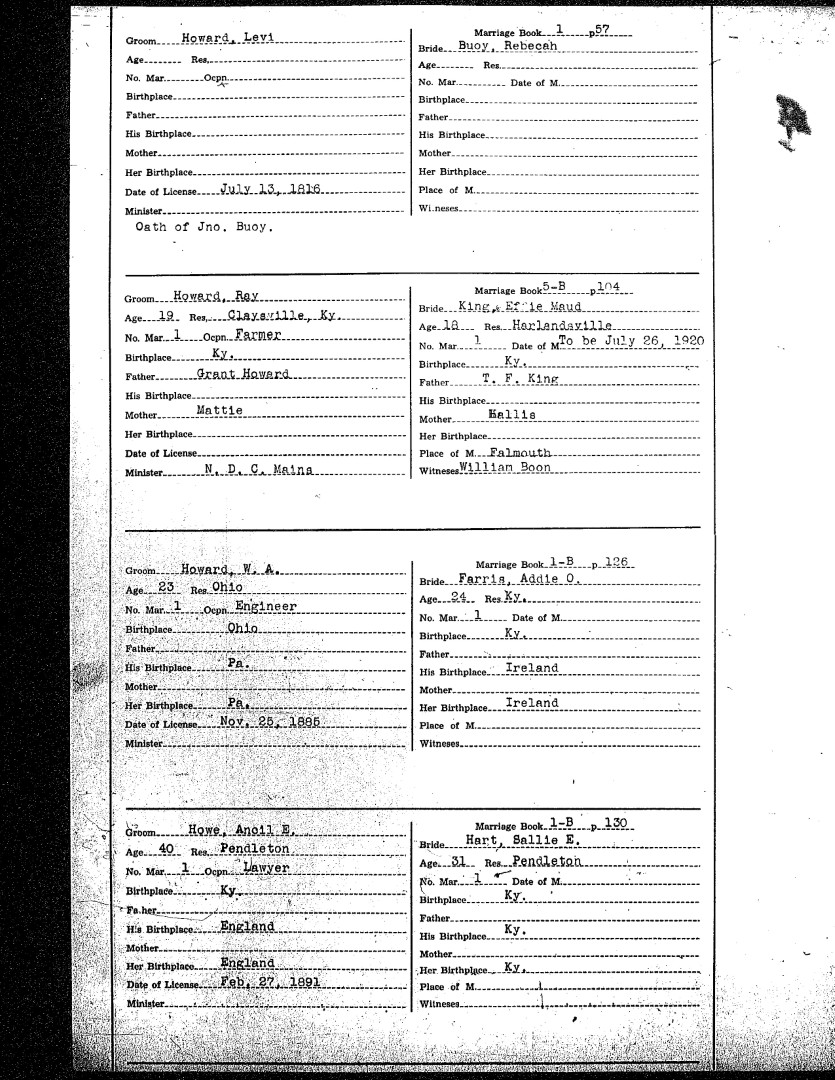 Marriage Book 1 p57
Groom Howard, Levi
Bride Buoy, Rebecah
Age Res.
Age Res.
No. Mar. Ocpn.
No. Mar. Date of M.
Birthplace
Birthplace
Father
Father
His Birthplace
His Birthplace
Mother
Mother
Her Birthplace
Her Birthplace
Date of License July 13, 1816
Place of M.
Minister
Wi.neses
Oath of Jno. Buoy.
Marriage Book 5-B p104
Groom Howard, Ray
Bride King, Effie Maud
Age 19 Res. Claysville, Ky.
Age 18 Res. Harlandsville
No. Mar. 1 Ocpn. Farmer
No. Mar. 1 Date of M. To be July 26, 1920
Birthplace Ky.
Birthplace Ky.
Father Grant Howard
Father T. F. King
His Birthplace
His Birthplace
Mother Mattie
Mother Hallis
Her Birthplace
Her Birthplace
Date of License
Place of M. Falmouth
Minister N. D. C. Mains
Witneses William Boon
Marriage Book 1-B p. 126
Groom Howard, W. A.
Bride Farris, Addie O.
Age 23 Res. Ohio
Age 24 Res. Ky.
No. Mar. 1 Ocpn. Engineer
No. Mar. 1 Date of M.
Birthplace Ohio
Birthplace Ky.
Father
Father
His Birthplace Pa.
His Birthplace Ireland
Mother
Mother
Her Birthplace Pa.
Her Birthplace Ireland
Date of License Nov. 25, 1885
Place of M.
Minister
Witneses
Marriage Book 1-B p. 130
Groom Howe, Ancil E.
Bride Hart, Sallie E.
Age 40 Res. Pendleton
Age 31 Res. Pendleton
No. Mar. 1 Ocpn. Lawyer
No. Mar. 1 Date of M.
Birthplace Ky.
Birthplace Ky.
Father
Father
His Birthplace England
His Birthplace Ky.
Mother
Mother
Her Birthplace England
Her Birthplace Ky.
Date of License Feb. 27, 1891
Place of M.
Minister
Witneses